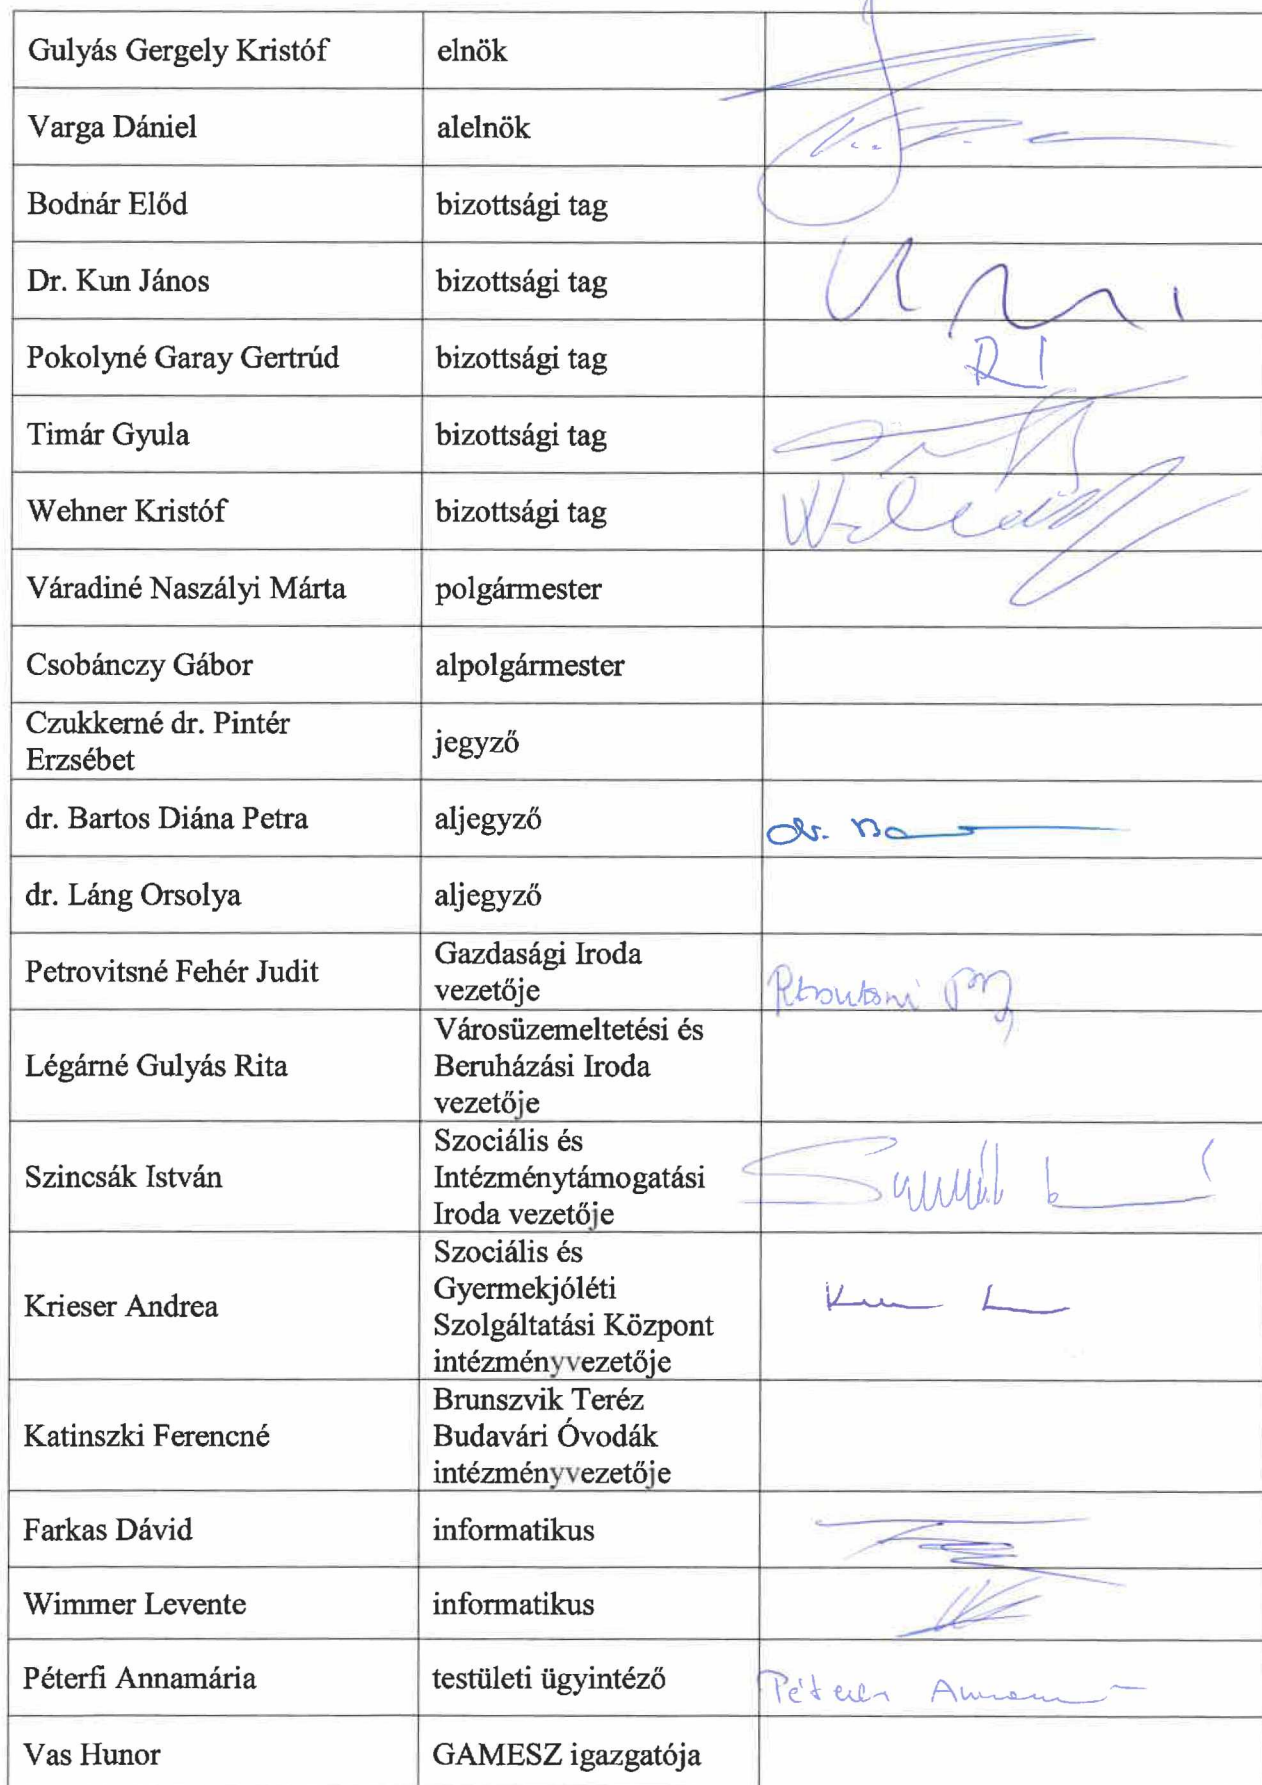 Gulyás Gergely Kristóf elnök
Varga Dániel alelnök
Bodnár Előd bizottsági tag
Dr. Kun János bizottsági tag
Pokolyné Garay Gertrúd bizottsági tag
Timár Gyula bizottsági tag
Wehner Kristóf bizottsági tag
Váradiné Naszályi Márta polgármester
Csobánczy Gábor alpolgármester
Czukkerné dr. Pintér
Erzsébet
jegyző
dr. Bartos Diána Petra aljegyző dr.
dr. Láng Orsolya aljegyző
Petrovitsné Fehér Judit
Gazdasági Iroda
vezetője
Légárné Gulyás Rita
Városüzemeltetési és
Beruházási Iroda
vezetője
Szincsák István
Szociális és
Intézménytámogatási
Iroda vezetője
Krieser Andrea
Szociális és
Gyermekjóléti
Szolgáltatási Központ
intézményvezetője
Katinszki Ferencné
Brunszvik Teréz
Budavári Óvodák
intézményvezetője
Farkas Dávid informatikus
Wimmer Levente informatikus
Péterfi Annamária testületi ügyintéző
Vas Hunor GAMESZ igazgatója